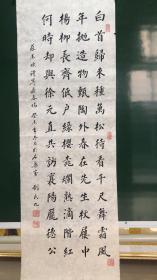 白首歸來種萬松待看千尺舞霜風
年抛造物甄陶外春在先生杖屨中
楊柳長齊低户綠櫻桃爛熟滴階紅
何時却與徐元直共訪襄陽龐德公